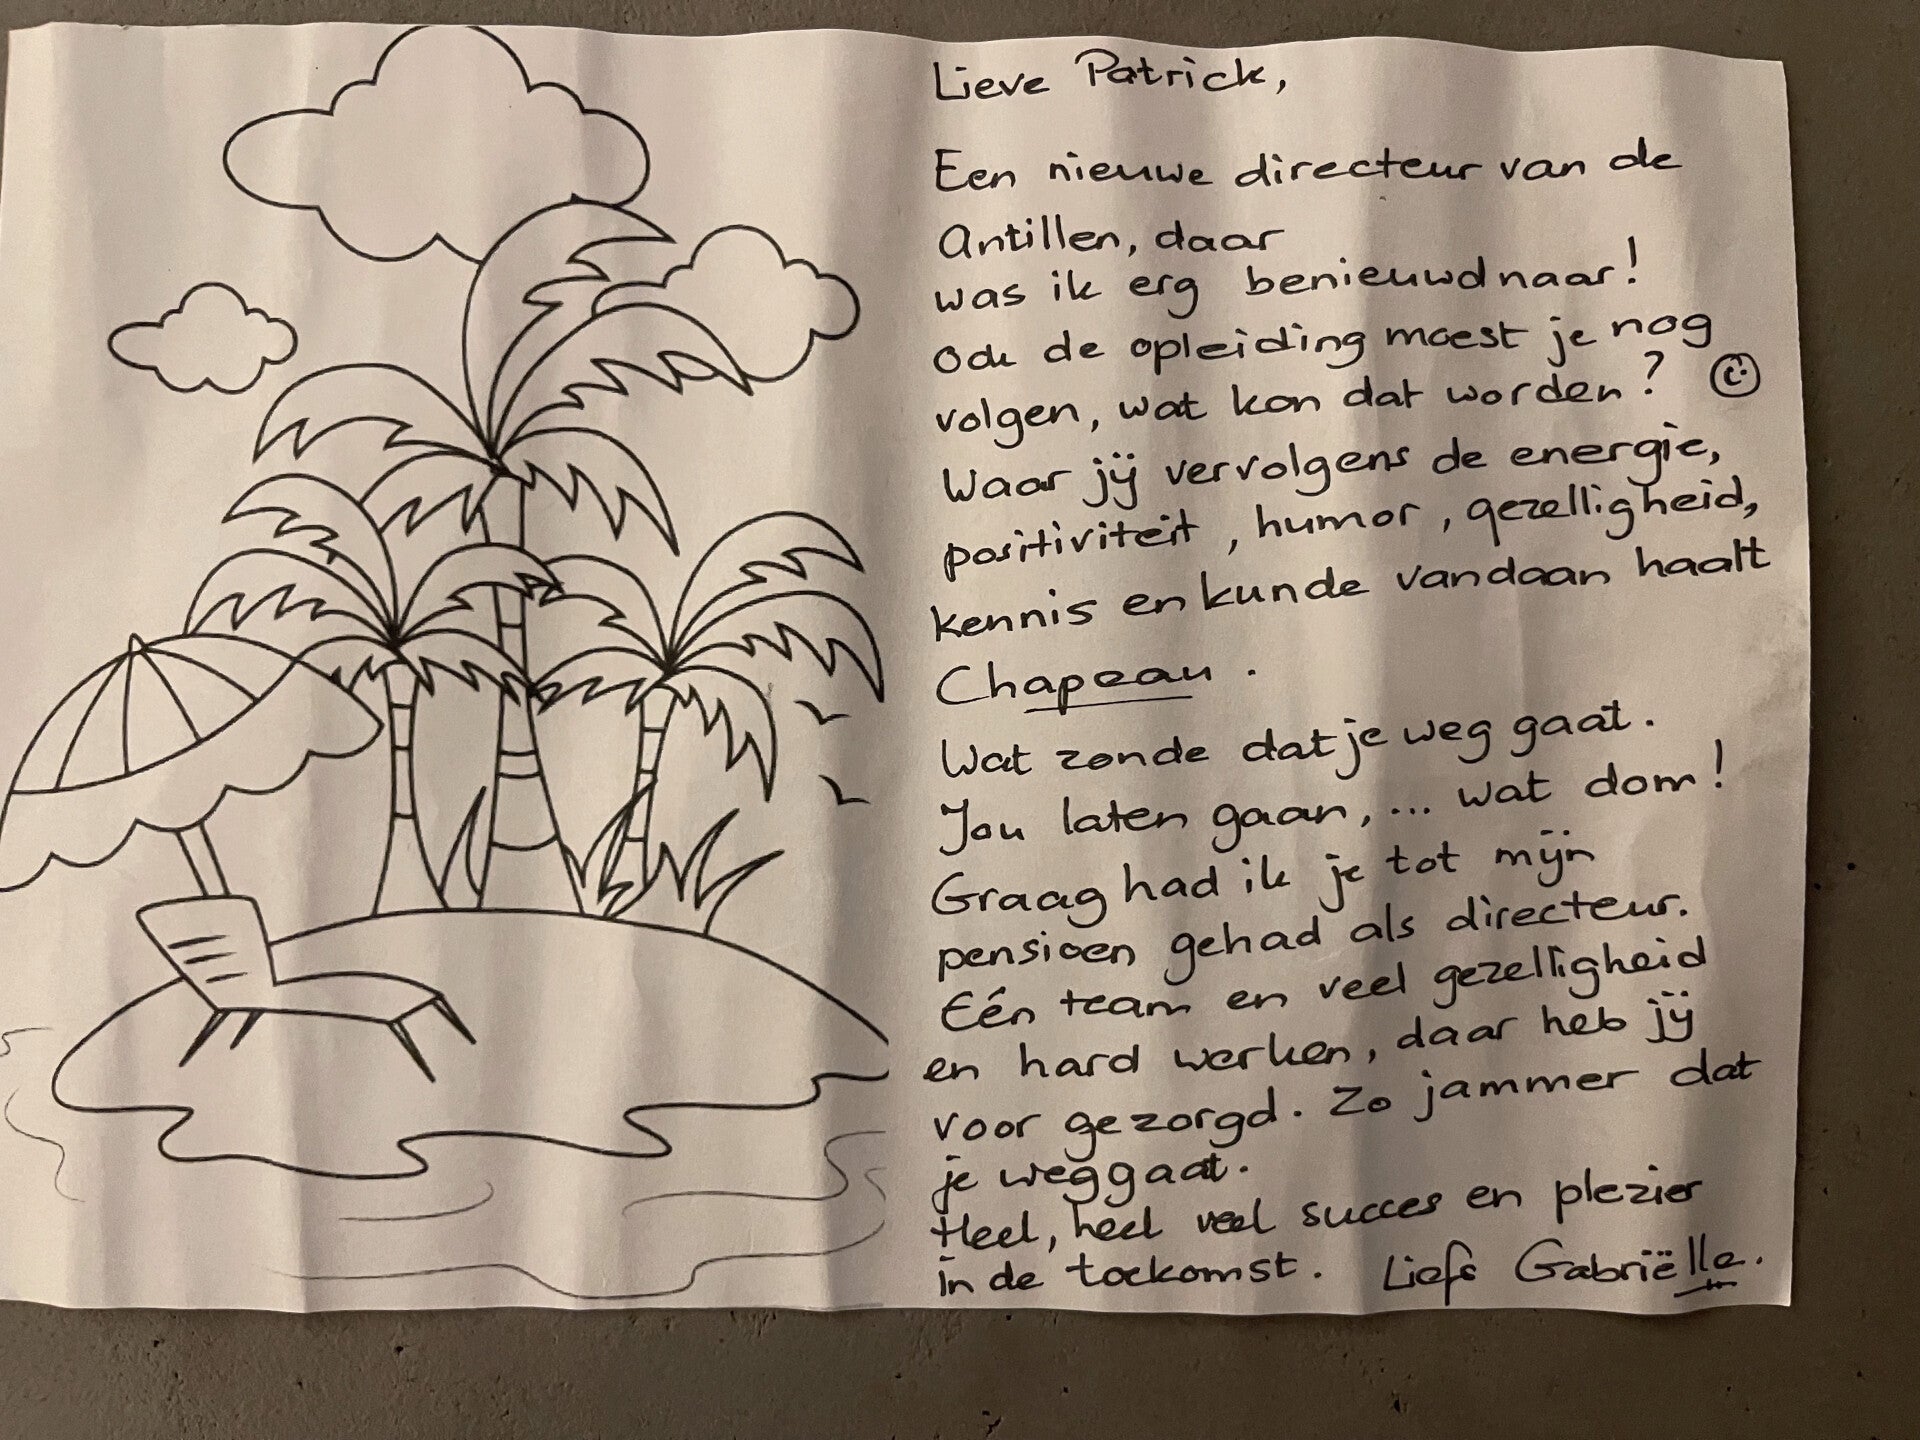 Lieve Patrick,
Een nieuwe directeur van de
Antillen, daar
was ik erg benieuwd naar!
Ook de opleiding moest je nog
volgen, wat kon dat worden?
Waar jij vervolgens de energie,
positiviteit, humor, gezelligheid,
kennis en kunde vandaan haalt
Chapeau.
Wat zonde dat je weg gaat.
Jou laten gaan, ... wat dom!
Graag had ik je tot mijn
pensioen gehad als directeur.
Eén team en veel gezelligheid
en hard werken, daar heb jij
voor gezorgd. Zo jammer dat
je weggaat.
Heel, heel veel succes en plezier
in de toekomst. Liefs Gabriëlle.